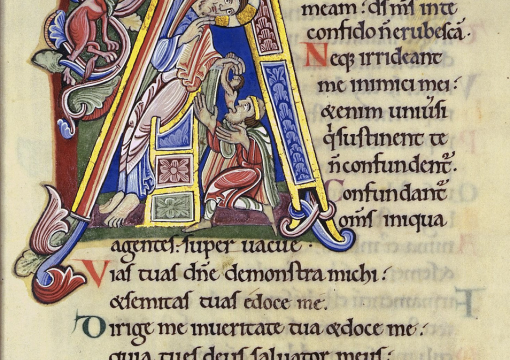 meam: d̄s m̄s inte
confido n̄ erubescā.
Neq; irrideant
me inimici mei:
&enim uniu̅si
q̄ sustinent te
n̄ confundent᷑.
Confundant᷑
om̄s iniqua
agentes: super uacue·
Vias tuas dn̄e demonstra michi:
&semitas tuas edoce me.
Dirige me inueritate tua &doce me:
quia tu es deus saluator meus: